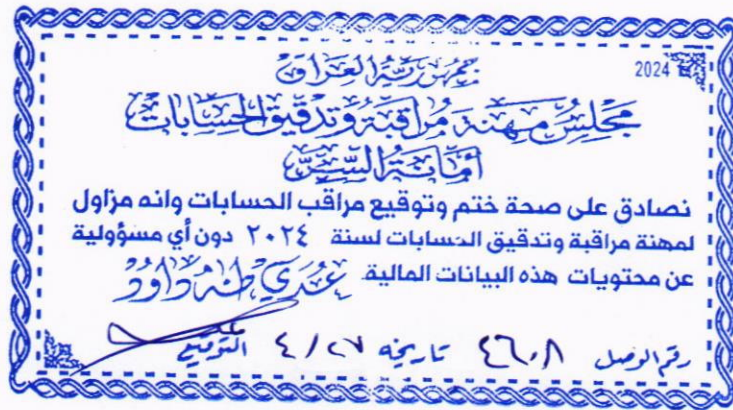 2024
جمهورية العراق
مجلس مهنة مراقبة وتدقيق الحسابات
أمانة السر
نصادق على صحة ختم وتوقيع مراقب الحسابات وانه مزاول
لمهنة مراقبة وتدقيق الحسابات لسنة ٢٠٢٤ دون أي مسؤولية
عن محتويات هذه البيانات المالية. عدي طه داود
رقم الوصل ٤٦٠٨ تاريخه ٤/٢٧ التوقيع